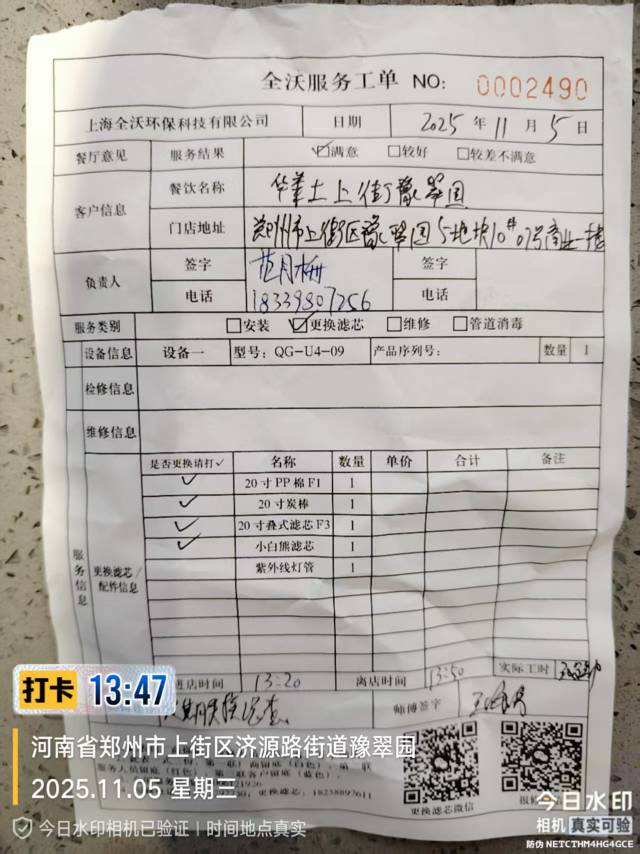 全沃服务工单 NO: 0002490
上海全沃环保科技有限公司 日期 2025年11月5日
餐厅意见 服务结果 ☑满意 □较好 □较差不满意
客户信息 餐饮名称 华莱士上街豫翠园
门店地址 郑州市上街区豫翠园5地块10#07号商业一楼
负责人 签字 范月梅 签字
电话 18339807256 电话
服务类别 □安装 ☑更换滤芯 □维修 □管道消毒
设备信息 设备一 型号: QG-U4-09 产品序列号: 数量 1
检修信息
维修信息
服务信息 更换滤芯/配件信息
是否更换请打✓ 名称 数量 单价 合计 备注
✓ 20寸PP棉F1 1
✓ 20寸炭棒 1
✓ 20寸叠式滤芯F3 1
✓ 小白熊滤芯 1
紫外线灯管 1
进店时间 13:20 离店时间 13:50 实际工时
师傅签字
更换滤芯微信
打卡 13:47
河南省郑州市上街区济源路街道豫翠园
2025.11.05 星期三
今日水印相机已验证 | 时间地点真实
今日水印
相机 真实可验
防伪 NETCTHM4HG4GCE